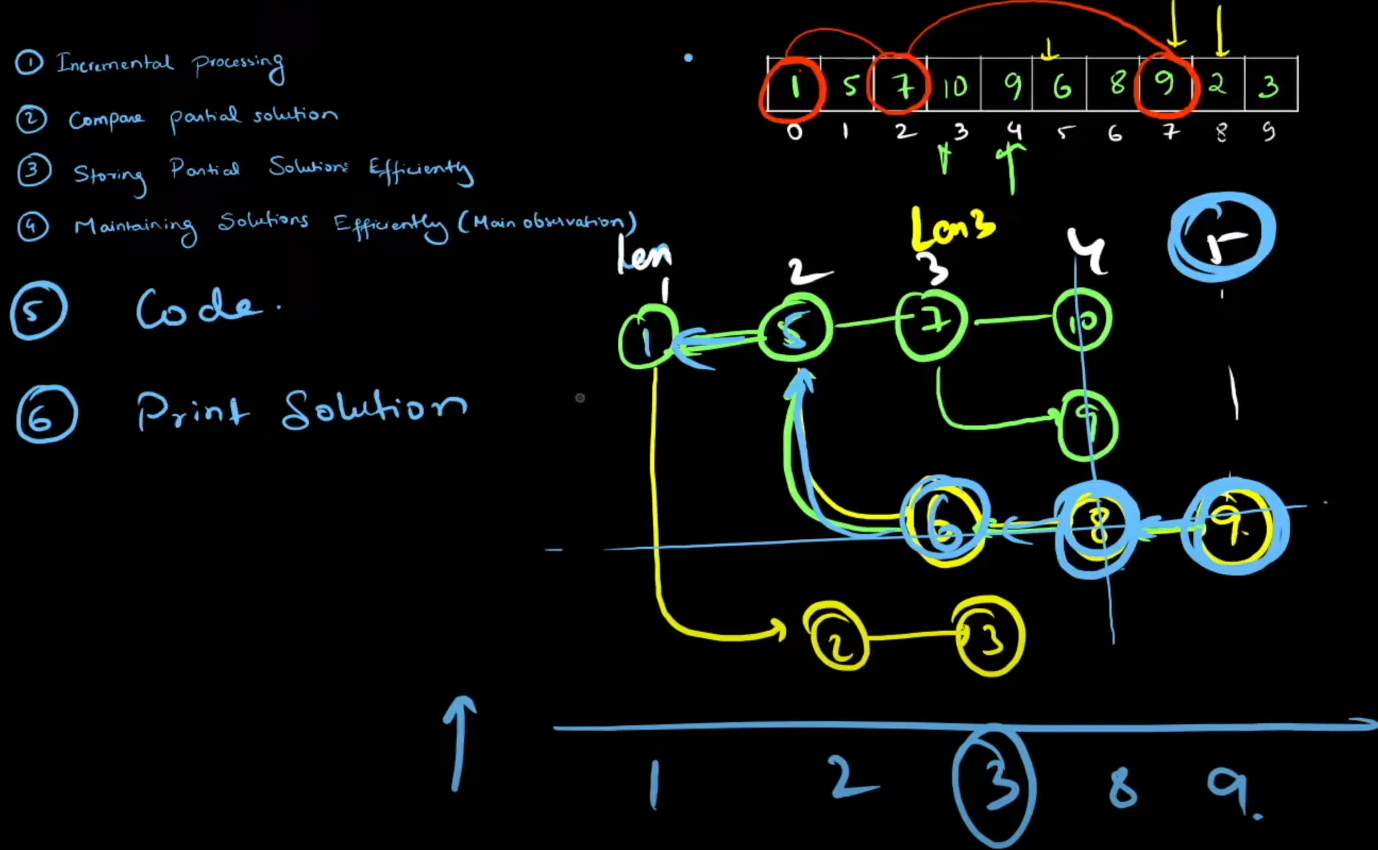 ① Incremental processing
② Compare partial solution
③ Storing Partial Solutions Efficiently
④ Maintaining Solutions Efficiently (Main observation)
⑤ Code.
⑥ Print Solution
1 5 7 10 9 6 8 9 2 3
0 1 2 3 4 5 6 7 8 9
Len3
len
1 2 3 4 5
1 5 7 10
9
6 8 9.
2 3
1 2 3 8 9.